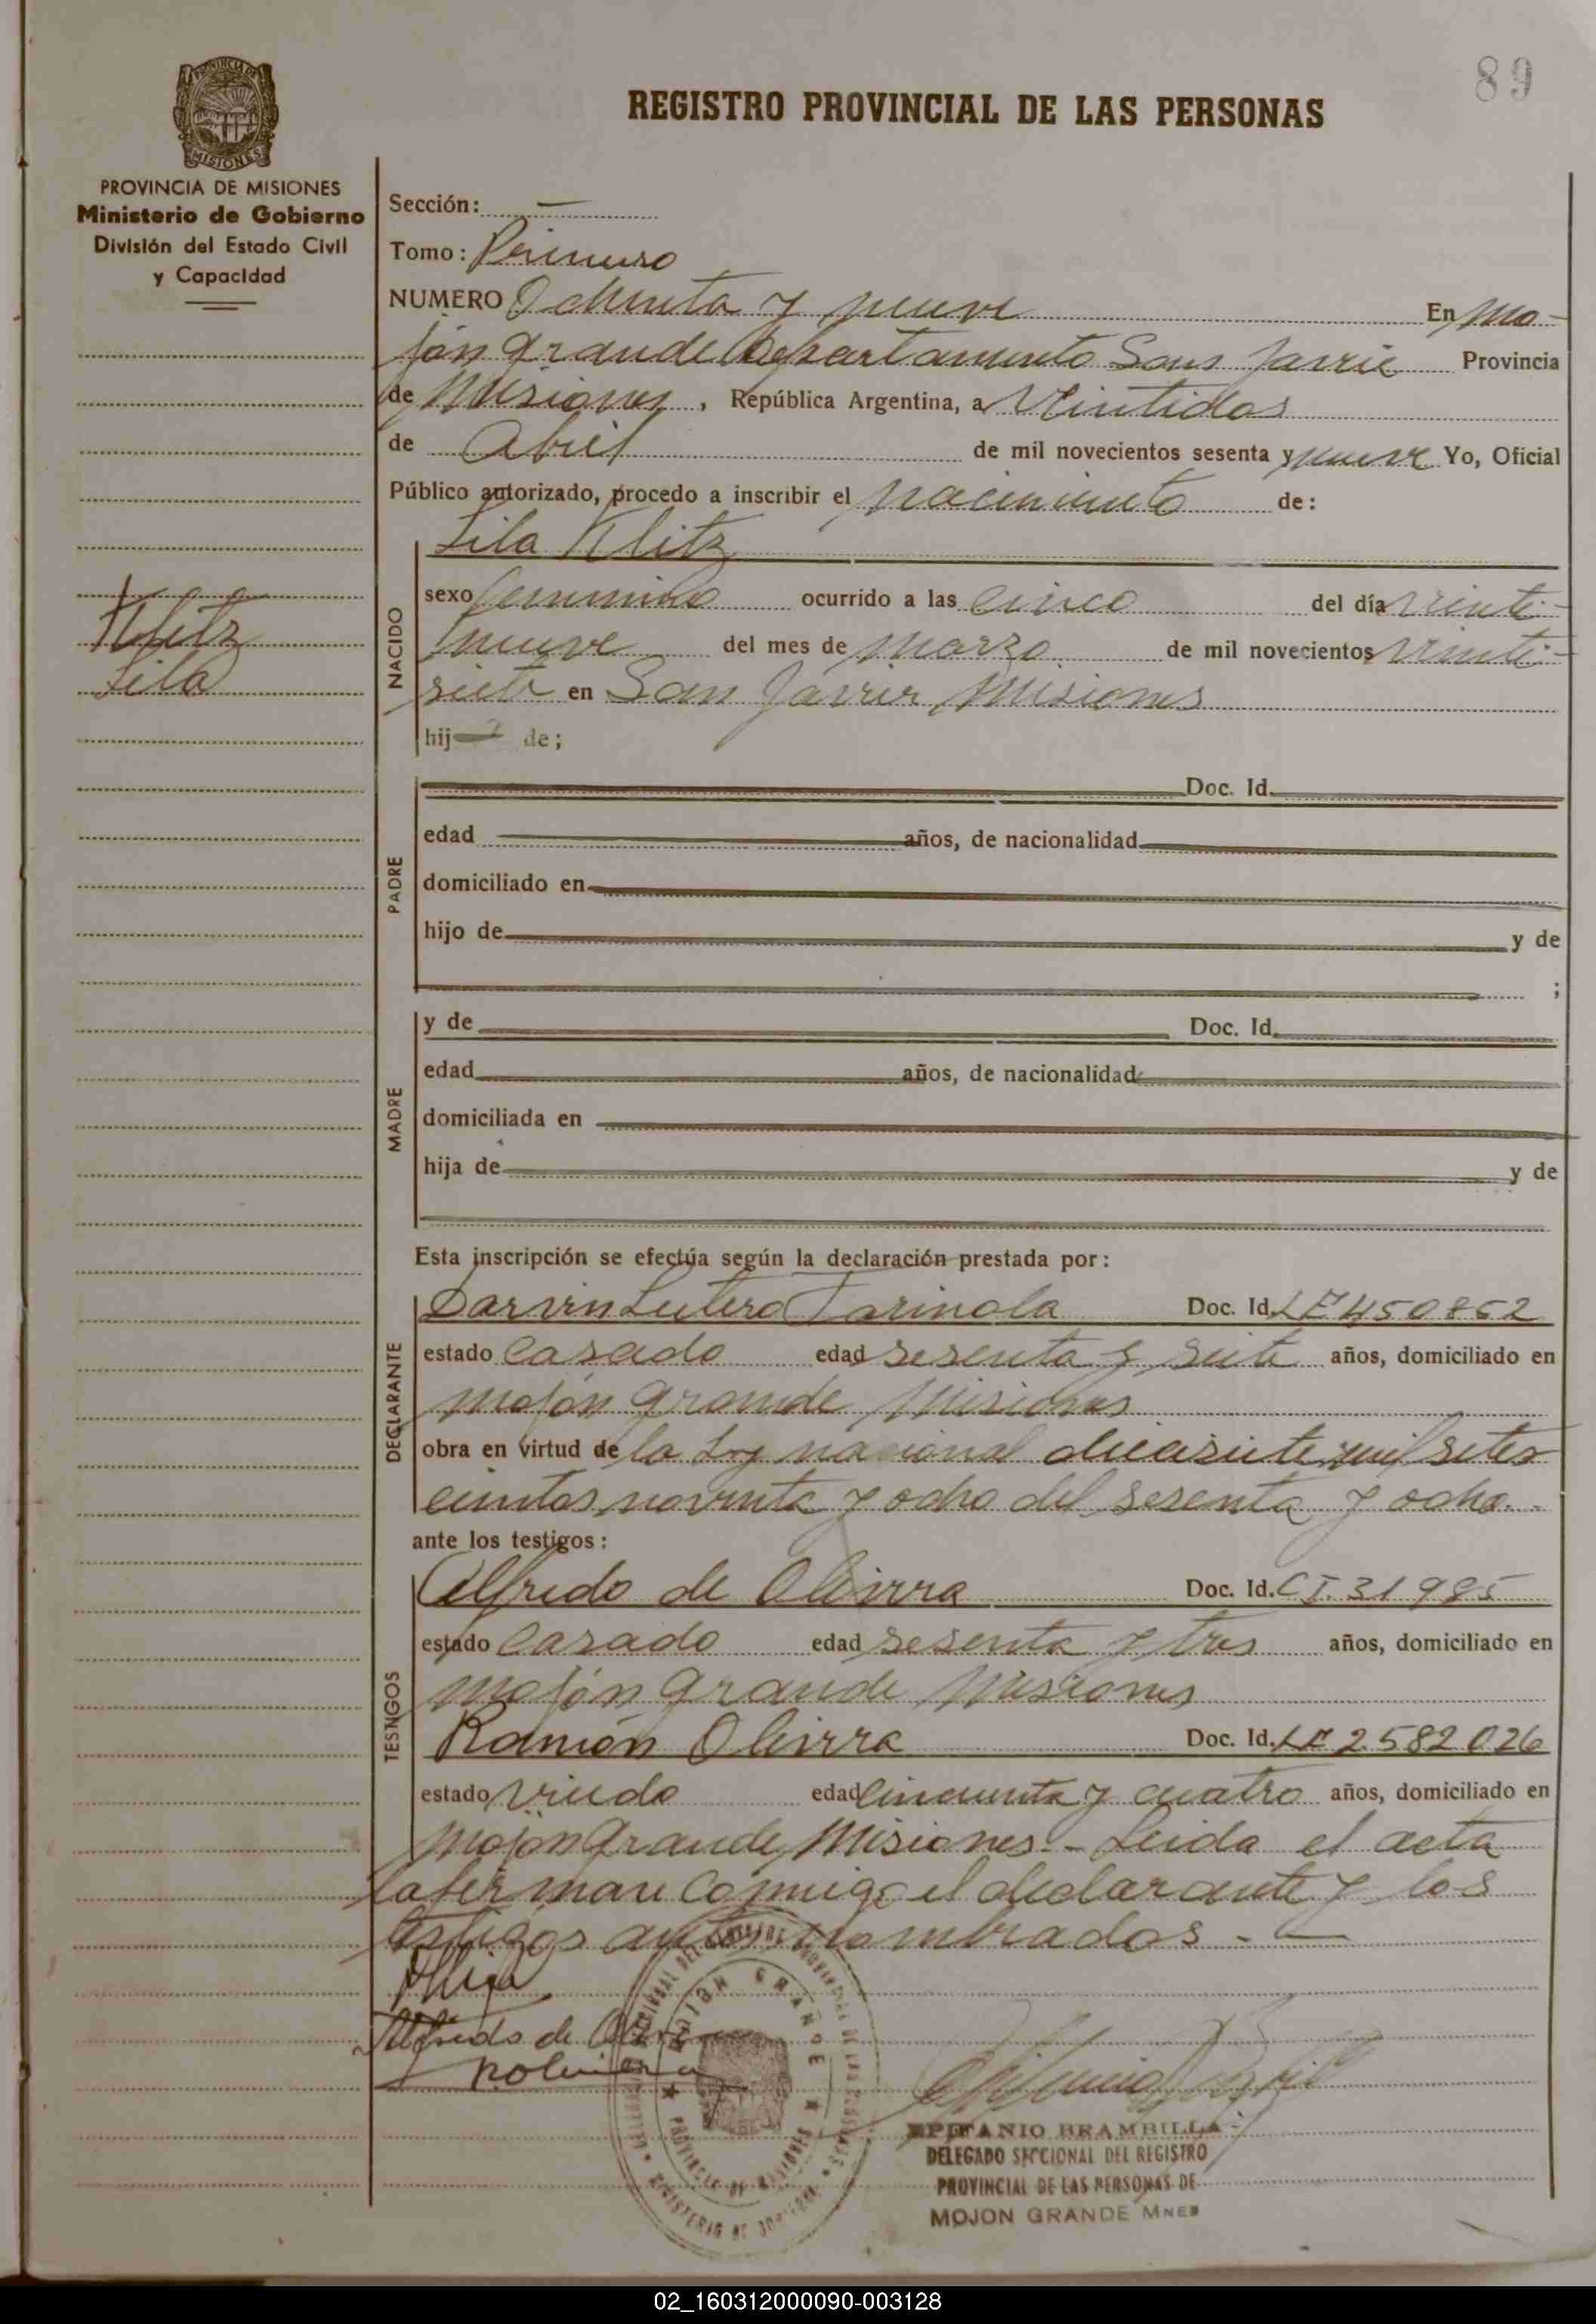 89
REGISTRO PROVINCIAL DE LAS PERSONAS
PROVINCIA DE MISIONES
Ministerio de Gobierno
División del Estado Civil
y Capacidad
Sección: —
Tomo: Primero
NUMERO Ochenta y nueve En Mo-
jón Grande Departamento San Javier Provincia
de Misiones, República Argentina, a Veintidos
de Abril de mil novecientos sesenta y nueve Yo, Oficial
Público autorizado, procedo a inscribir el nacimiento de:
Lila Klitz
Klitz
Lila
NACIDO
sexo femenino ocurrido a las cinco del día veinti-
nueve del mes de marzo de mil novecientos veinti-
siete en San Javier Misiones
hij de;
PADRE
Doc. Id.
edad años, de nacionalidad
domiciliado en
hijo de y de
;
MADRE
y de Doc. Id.
edad años, de nacionalidad
domiciliada en
hija de y de
Esta inscripción se efectúa según la declaración prestada por:
DECLARANTE
Darvin Lutero Tarinola Doc. Id. LE 450852
estado Casado edad sesenta y siete años, domiciliado en
Mojón Grande Misiones
obra en virtud de la Ley nacional diecisiete mil sete
cientos noventa y ocho del sesenta y ocho.-
ante los testigos:
TESTIGOS
Alfredo de Olivera Doc. Id. C I. 31 985
estado Casado edad sesenta y tres años, domiciliado en
Mojón Grande Misiones
Ramón Olivera Doc. Id. LE 2.582.026
estado viudo edad cincuenta y cuatro años, domiciliado en
Mojon Grande Misiones.- Leida el acta
la firman conmigo el declarante y los
testigos antes nombrados.—
Alfredo de
MOJON GRANDE
PROVINCIA DE MISIONES
MINISTERIO DE
EPIFANIO BRAMBILLA
DELEGADO SECCIONAL DEL REGISTRO
PROVINCIAL DE LAS PERSONAS DE
MOJON GRANDE MNES
02_160312000090-003128